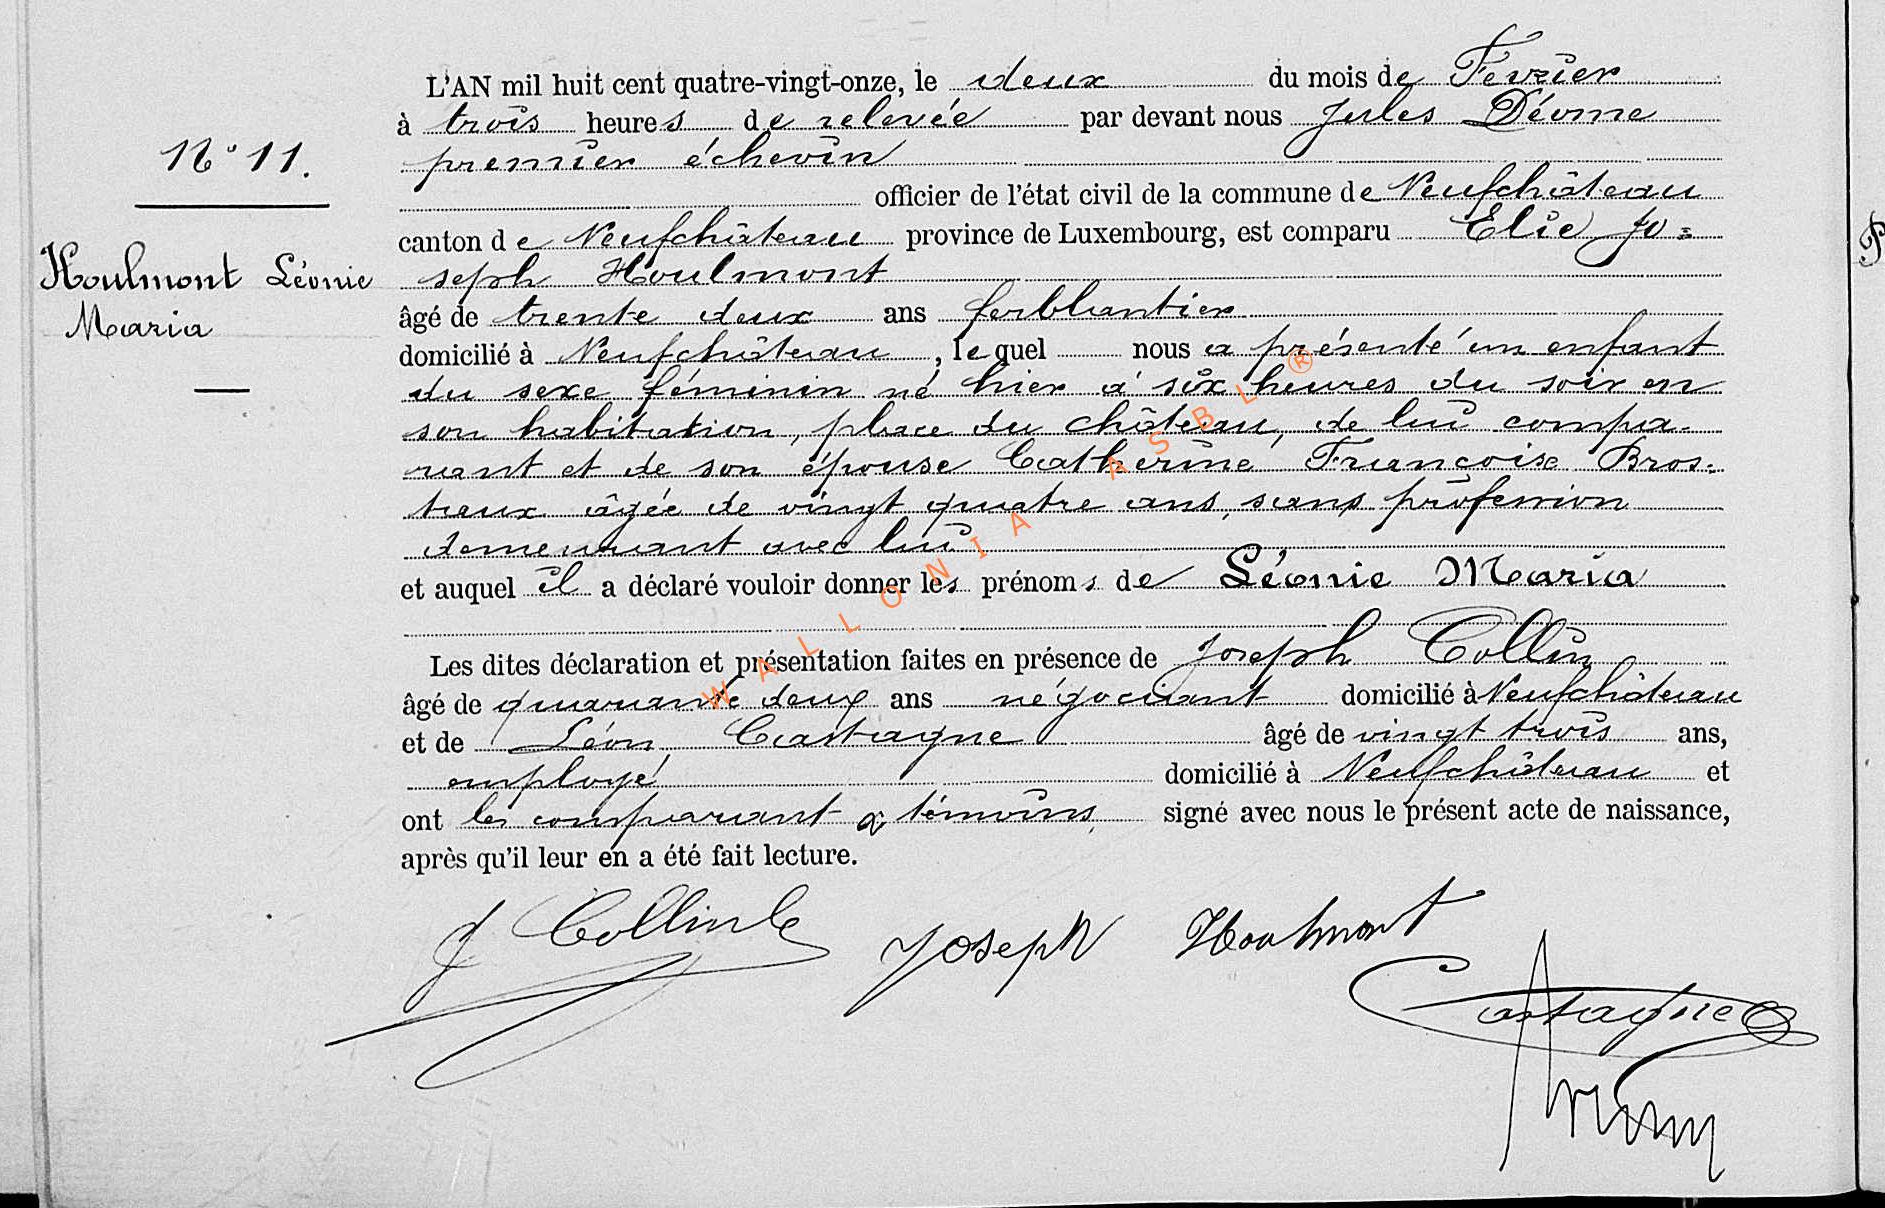 L'AN mil huit cent quatre-vingt-onze, le deux du mois de Fevrier
à trois heures de relevée par devant nous Jules Déome
N° 11.
premier échevin
officier de l'état civil de la commune de Neufchâteau
canton de Neufchâteau province de Luxembourg, est comparu Elie Jo=
Houlmont Léonie
Maria
seph Houlmont
âgé de trente deux ans ferblantier
domicilié à Neufchâteau, lequel nous a présenté un enfant
du sexe féminin né hier à six heures du soir en
son habitation, place du château, de lui compa-
rant et de son épouse Catherine Françoise Bros-
teaux âgée de vingt quatre ans, sans profession
demeurant avec lui
et auquel il a déclaré vouloir donner les prénoms de Léonie Maria
Les dites déclaration et présentation faites en présence de Joseph Collin
âgé de quarante deux ans négociant domicilié à Neufchâteau
et de Léon Castagne âgé de vingt trois ans,
employé domicilié à Neufchâteau et
ont les comparant & témoins signé avec nous le présent acte de naissance,
après qu'il leur en a été fait lecture.
J Collin Joseph Houlmont
Castagne
WALLONIA ASBL ®